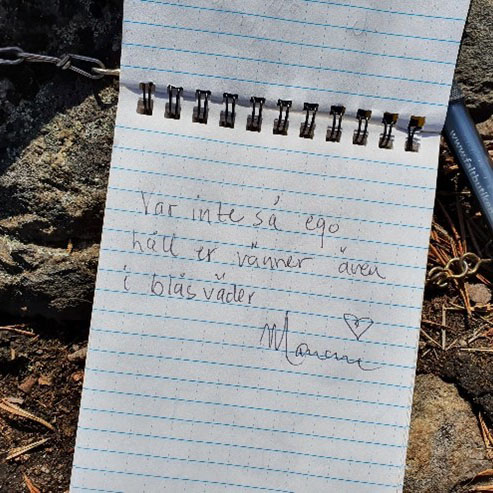 Var inte så ego
håll er vänner även
i blåsväder
www.faltbutiken